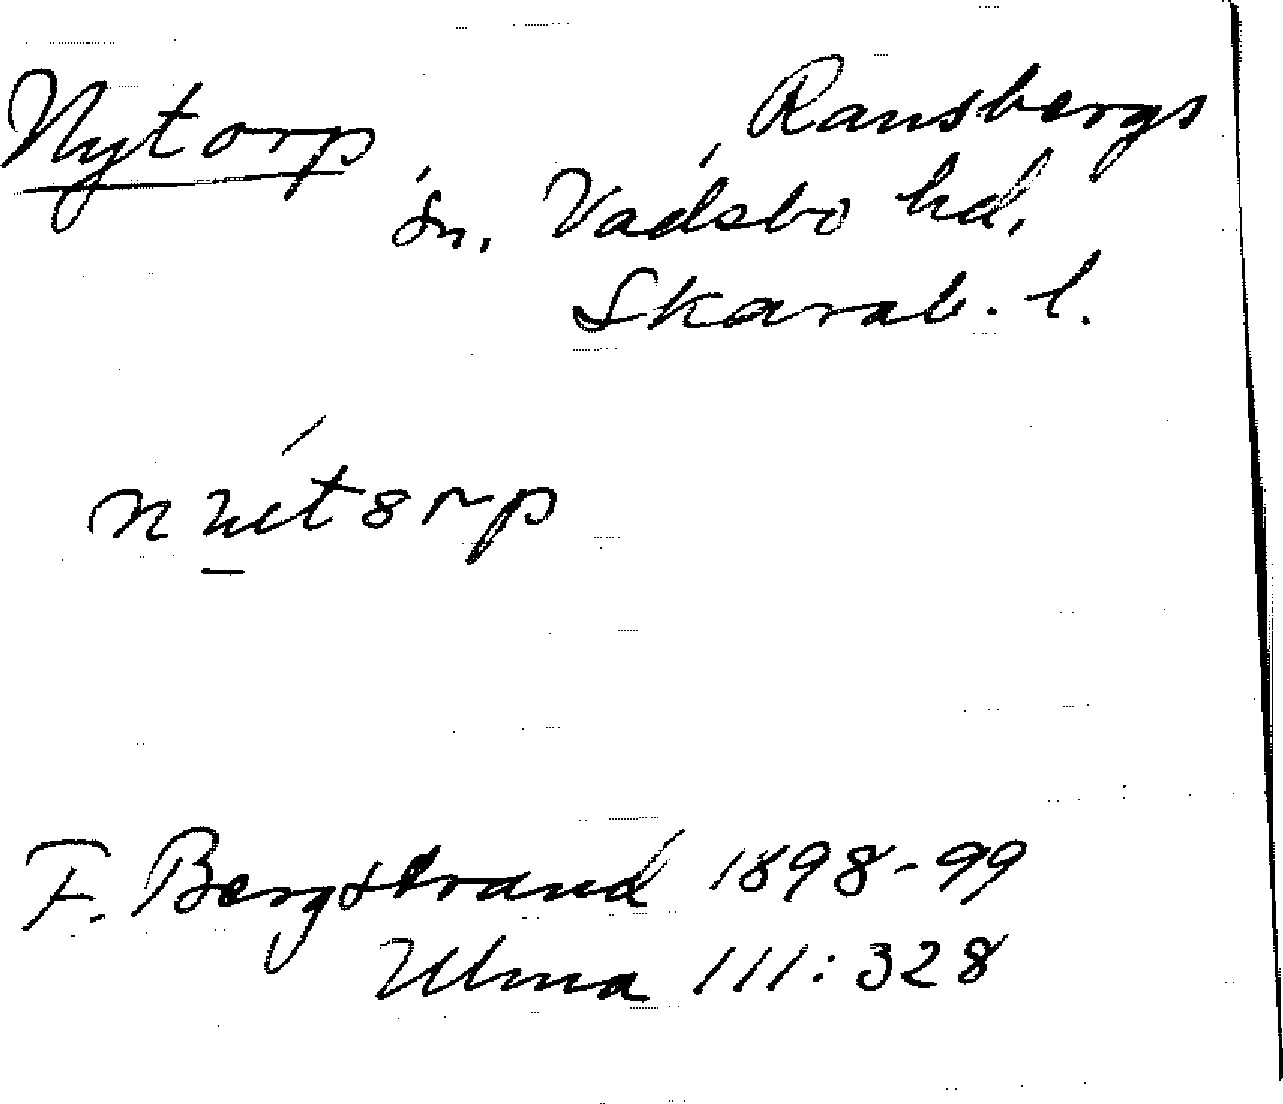 Nytorp
Ransbergs
sn. Vadsbo hd.
Skarab. l.
F. Bergstrand 1898-99
Ulma 111:328